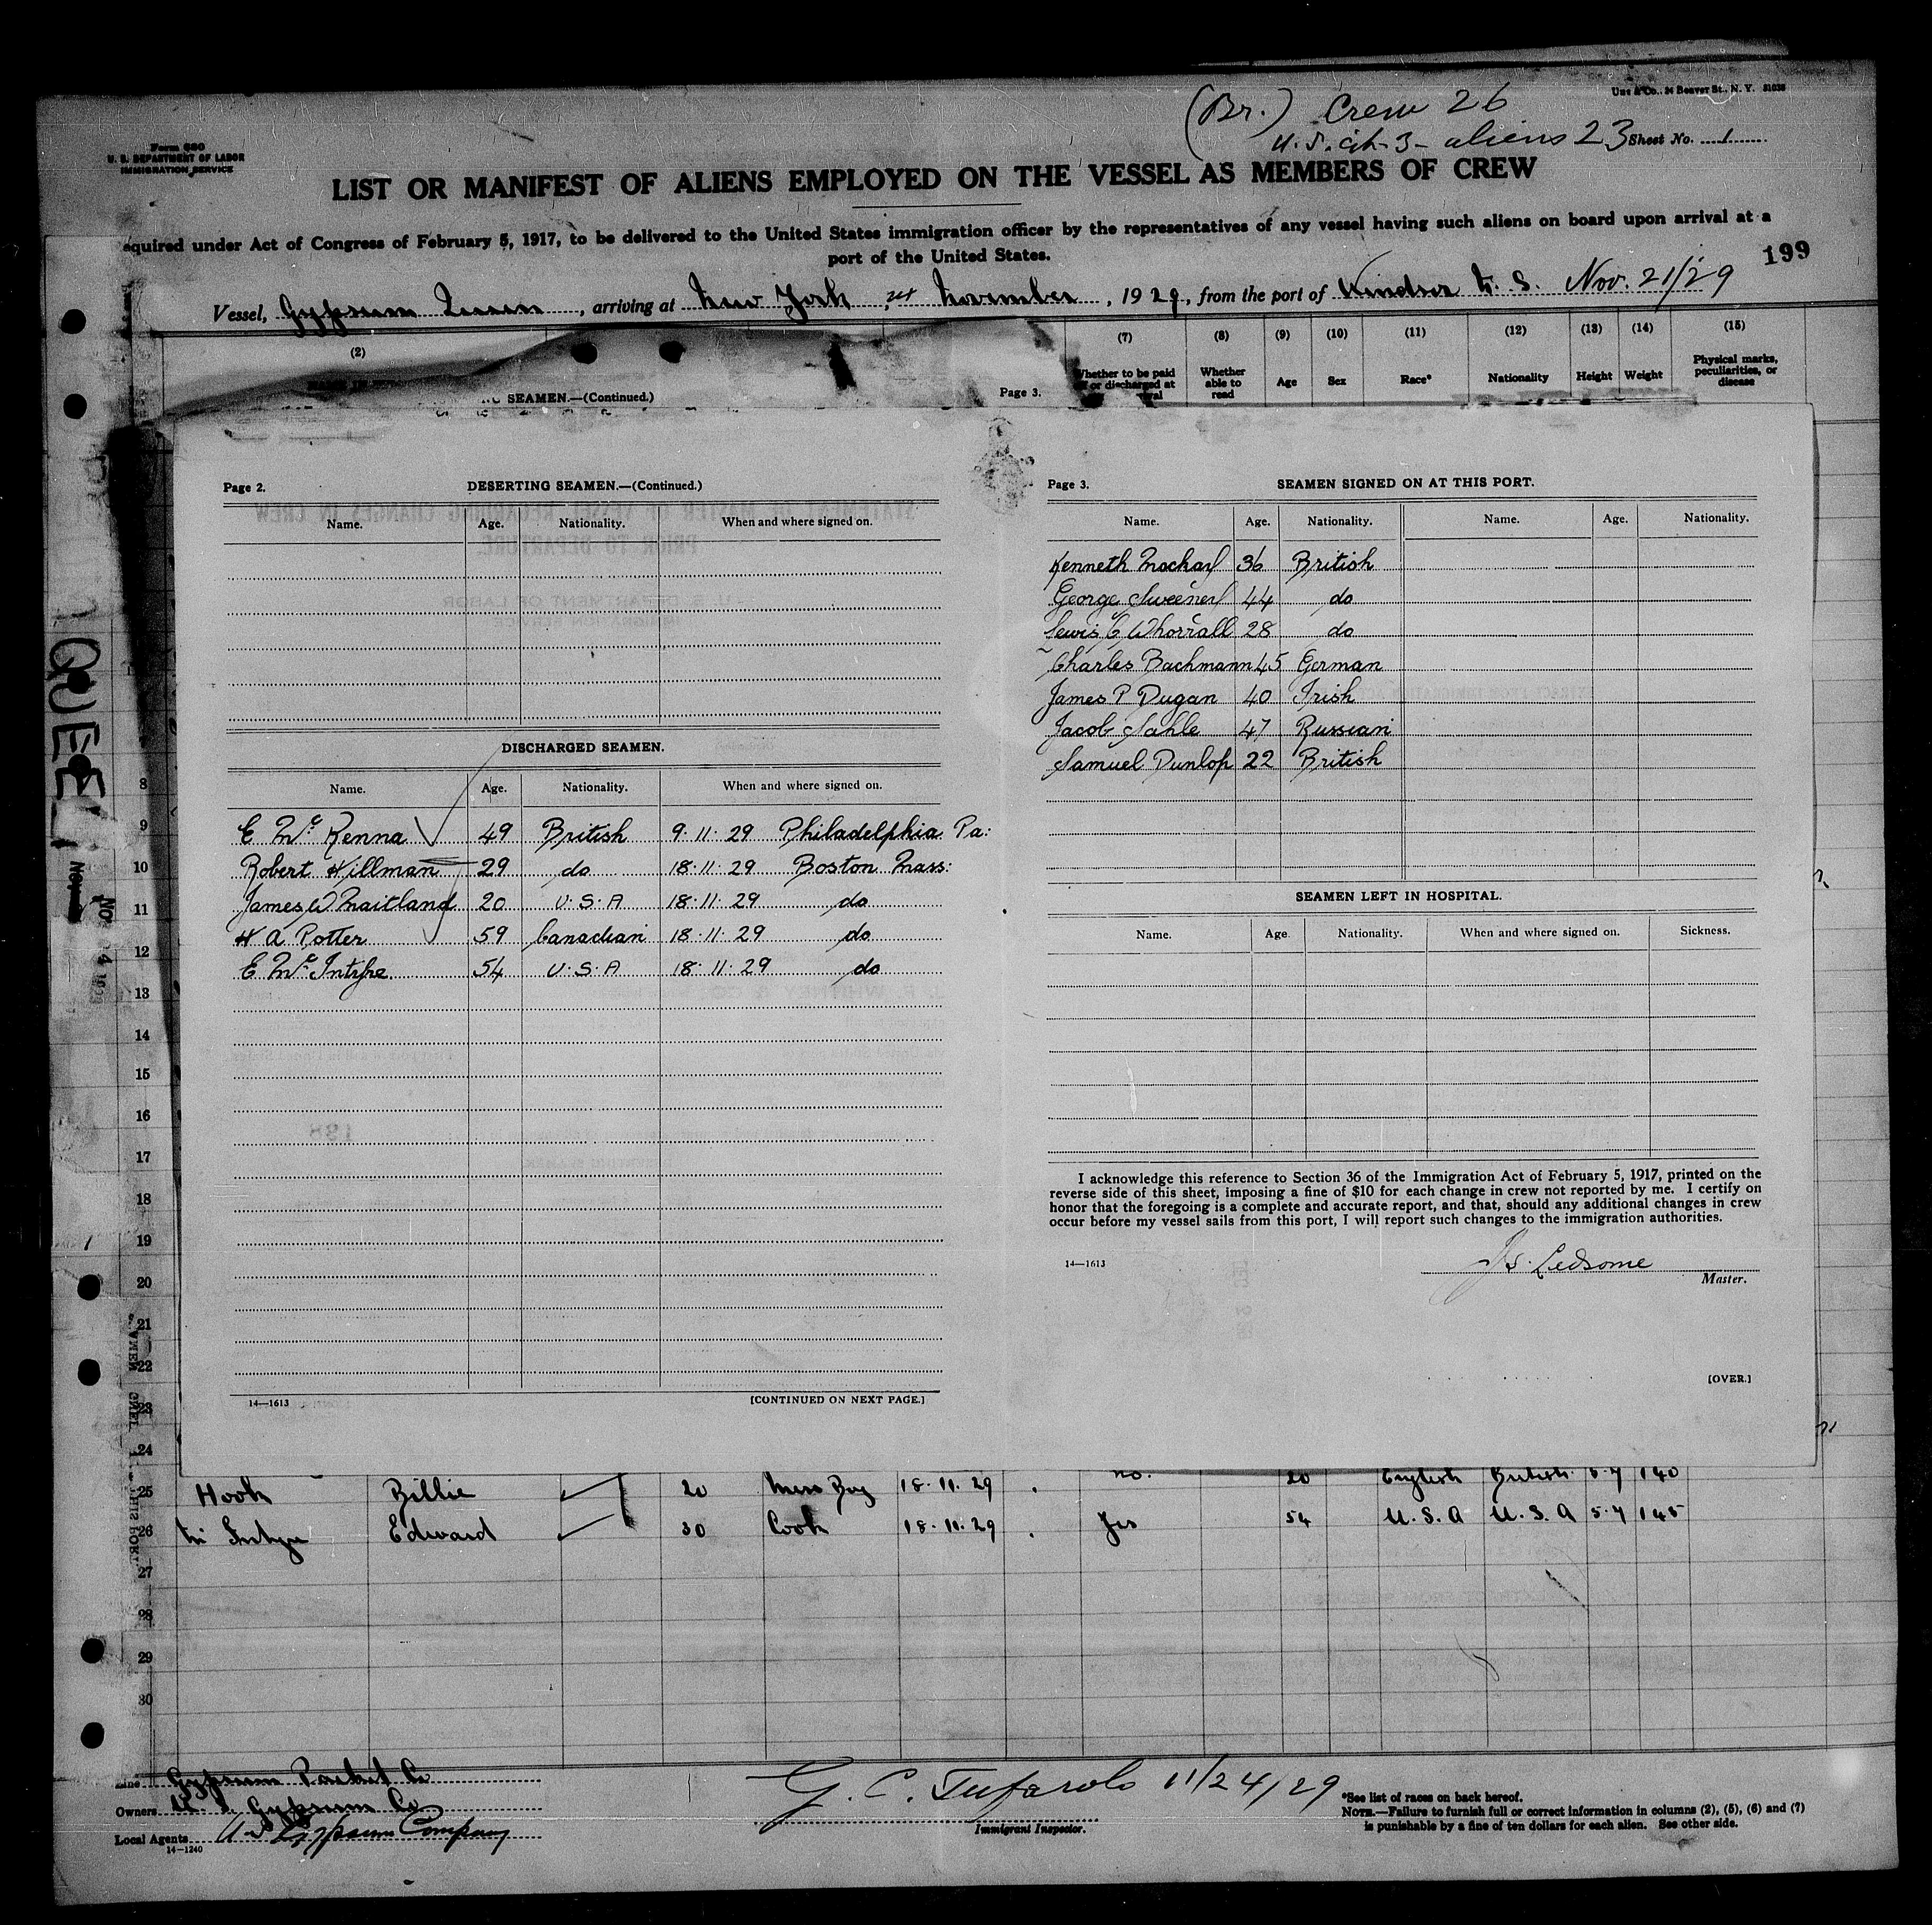 (Br.) Crew 26
U.S. cit-3- aliens 23
Unz & Co., 24 Beaver St., N. Y.
Form 680
U. S. DEPARTMENT OF LABOR
IMMIGRATION SERVICE
Sheet No. 1
LIST OR MANIFEST OF ALIENS EMPLOYED ON THE VESSEL AS MEMBERS OF CREW
equired under Act of Congress of February 5, 1917, to be delivered to the United States immigration officer by the representatives of any vessel having such aliens on board upon arrival at a
port of the United States.
199
Vessel, Gypsum Queen, arriving at New York, November, 1929, from the port of Windsor N. S. Nov. 21/29
(2) (7) (8) (9) (10) (11) (12) (13) (14) (15)
Whether to be paid or discharged at Whether able to read Age Sex Race* Nationality Height Weight Physical marks, peculiarities, or disease
SEAMEN.—(Continued.) Page 3.
Page 2. DESERTING SEAMEN.—(Continued.)
Name. Age. Nationality. When and where signed on.
DISCHARGED SEAMEN.
Name. Age. Nationality. When and where signed on.
E Mc Kenna 49 British 9·11·29 Philadelphia Pa:
Robert Hillman 29 do 18·11·29 Boston Mass:
James W Maitland 20 U.S.A 18·11·29 do
H A Potter 59 Canadian 18·11·29 do
E Mc Intyre 54 U.S.A 18·11·29 do
14—1613 [CONTINUED ON NEXT PAGE.]
Page 3. SEAMEN SIGNED ON AT THIS PORT.
Name. Age. Nationality. Name. Age. Nationality.
Kenneth 36 British
George Sweeney 44 do
Lewis C Whorrall 28 do
Charles Bachmann 45 German
James P Dugan 40 Irish
Jacob Sahle 47 Russian
Samuel Dunlop 22 British
SEAMEN LEFT IN HOSPITAL.
Name. Age Nationality. When and where signed on. Sickness.
I acknowledge this reference to Section 36 of the Immigration Act of February 5, 1917, printed on the
reverse side of this sheet, imposing a fine of $10 for each change in crew not reported by me. I certify on
honor that the foregoing is a complete and accurate report, and that, should any additional changes in crew
occur before my vessel sails from this port, I will report such changes to the immigration authorities.
14—1613
Ledsome
Master.
[OVER.]
QUEE
8
9
10
11
12
13
14
15
16
17
18
19
20
21
22
23
24
25 Hook Billie 20 Mess Boy 18·11·29 no. 20 English British 5·7 140
26 Mc Intyre Edward 30 Cook 18·11·29 Yes 54 U.S.A U.S.A 5·7 145
27
28
29
30
Line Gypsum Packet Co
Owners U. S. Gypsum Co
Local Agents U S Gypsum Company
14—1240
G. C. Tufarolo 11/24/29
Immigrant Inspector.
*See list of races on back hereof.
NOTE.—Failure to furnish full or correct information in columns (2), (5), (6) and (7)
is punishable by a fine of ten dollars for each alien. See other side.